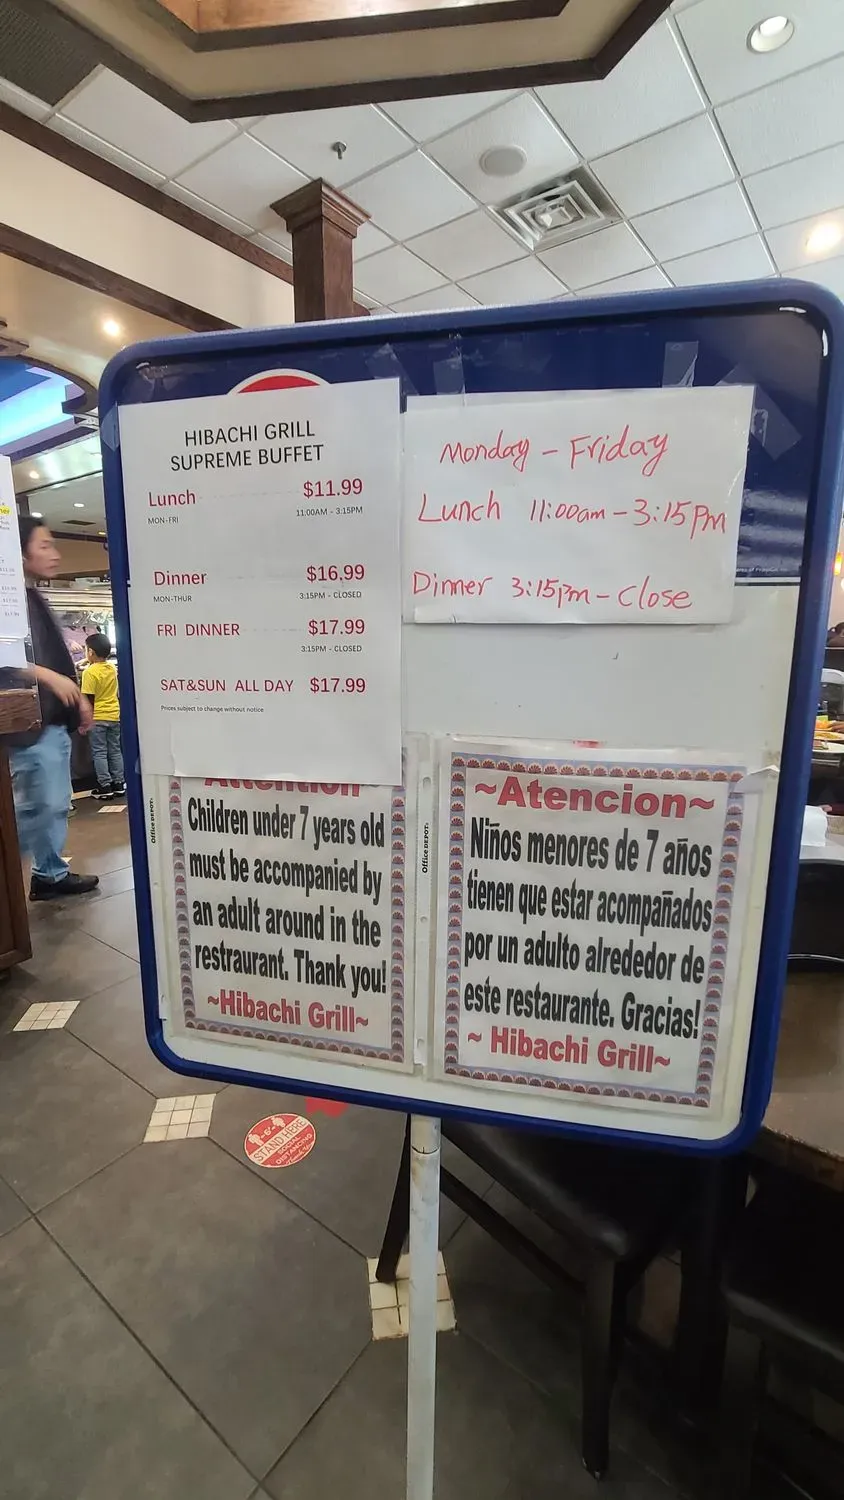 HIBACHI GRILL
SUPREME BUFFET
Lunch $11.99
MON-FRI 11:00AM - 3:15PM
Dinner $16.99
MON-THUR 3:15PM - CLOSED
FRI DINNER $17.99
3:15PM - CLOSED
SAT&SUN ALL DAY $17.99
Prices subject to change without notice
Monday - Friday
Lunch 11:00am - 3:15pm
Dinner 3:15pm - Close
Attention
Children under 7 years old
must be accompanied by
an adult around in the
restraurant. Thank you!
~Hibachi Grill~
Office DEPOT
~Atencion~
Niños menores de 7 años
tienen que estar acompañados
por un adulto alrededor de
este restaurante. Gracias!
~ Hibachi Grill~
Office DEPOT
STAND HERE
SOCIAL
DISTANCING